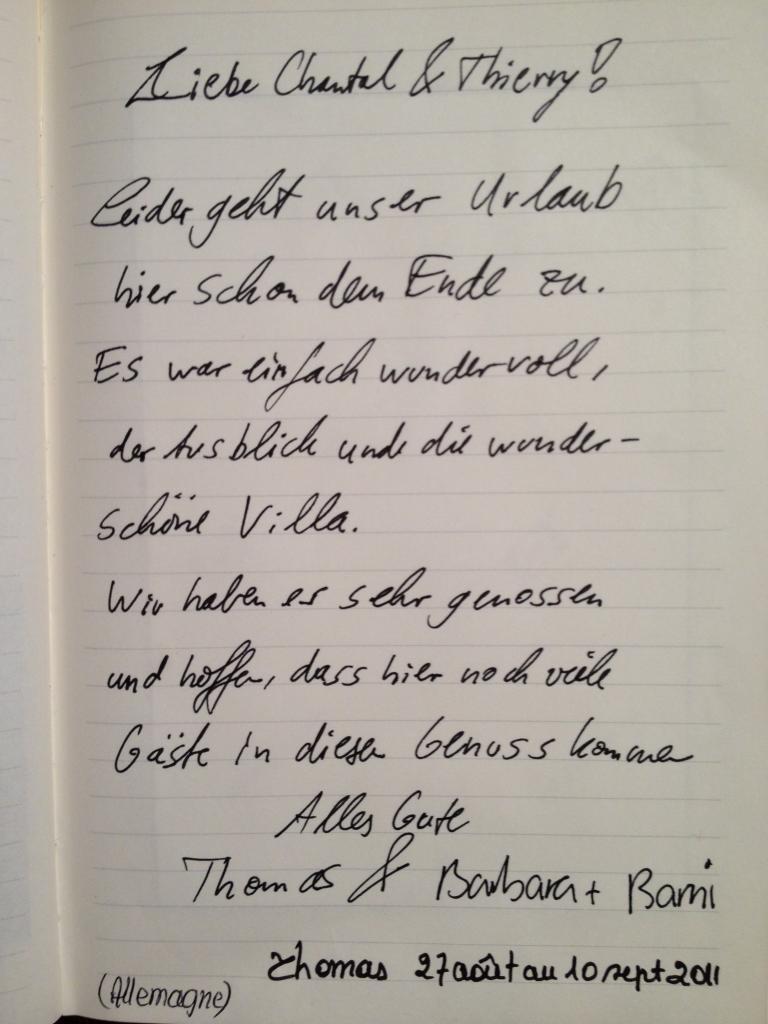 Liebe Chantal & Thierry!
Leider geht unser Urlaub
hier schon dem Ende zu.
Es war einfach wundervoll,
der Ausblick und die wunder-
schöne Villa.
Wir haben es sehr genossen
und hoffen, dass hier noch viele
Gäste in diesen Genuss kommen
Alles Gute
Thomas & Barbara + Bami
Thomas 27 août au 10 sept 2011
(Allemagne)